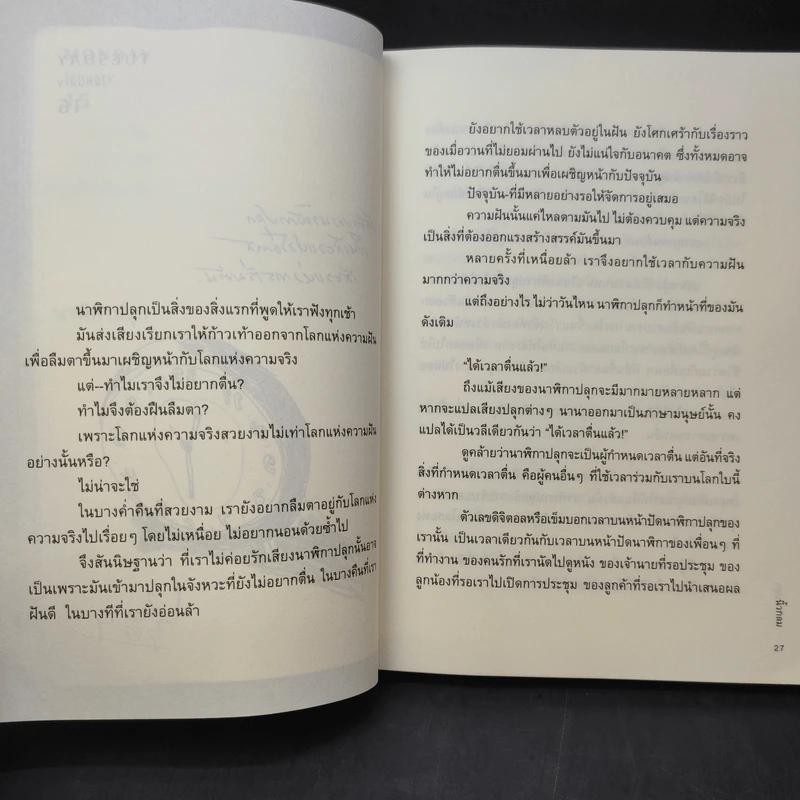 นาฬิกาปลุกเป็นสิ่งของสิ่งแรกที่พูดให้เราฟังทุกเช้า
มันส่งเสียงเรียกเราให้ก้าวเท้าออกจากโลกแห่งความฝัน
เพื่อลืมตาขึ้นมาเผชิญหน้ากับโลกแห่งความจริง
แต่--ทำไมเราจึงไม่อยากตื่น?
ทำไมจึงต้องฝืนลืมตา?
เพราะโลกแห่งความจริงสวยงามไม่เท่าโลกแห่งความฝัน
อย่างนั้นหรือ?
ไม่น่าจะใช่
ในบางค่ำคืนที่สวยงาม เรายังอยากลืมตาอยู่กับโลกแห่ง
ความจริงไปเรื่อยๆ โดยไม่เหนื่อย ไม่อยากนอนด้วยซ้ำไป
จึงสันนิษฐานว่า ที่เราไม่ค่อยรักเสียงนาฬิกาปลุกนั้นอาจ
เป็นเพราะมันเข้ามาปลุกในจังหวะที่ยังไม่อยากตื่น ในบางคืนที่เรา
ฝันดี ในบางทีที่เรายังอ่อนล้า
ยังอยากใช้เวลาหลบตัวอยู่ในฝัน ยังโศกเศร้ากับเรื่องราว
ของเมื่อวานที่ไม่ยอมผ่านไป ยังไม่แน่ใจกับอนาคต ซึ่งทั้งหมดอาจ
ทำให้ไม่อยากตื่นขึ้นมาเพื่อเผชิญหน้ากับปัจจุบัน
ปัจจุบัน-ที่มีหลายอย่างรอให้จัดการอยู่เสมอ
ความฝันนั้นแค่ไหลตามมันไป ไม่ต้องควบคุม แต่ความจริง
เป็นสิ่งที่ต้องออกแรงสร้างสรรค์มันขึ้นมา
หลายครั้งที่เหนื่อยล้า เราจึงอยากใช้เวลากับความฝัน
มากกว่าความจริง
แต่ถึงอย่างไร ไม่ว่าวันไหน นาฬิกาปลุกก็ทำหน้าที่ของมัน
ดังเดิม
“ได้เวลาตื่นแล้ว!”
ถึงแม้เสียงของนาฬิกาปลุกจะมีมากมายหลายหลาก แต่
หากจะแปลเสียงปลุกต่างๆ นานาออกมาเป็นภาษามนุษย์นั้น คง
แปลได้เป็นวลีเดียวกันว่า “ได้เวลาตื่นแล้ว!”
ดูคล้ายว่านาฬิกาปลุกจะเป็นผู้กำหนดเวลาตื่น แต่อันที่จริง
สิ่งที่กำหนดเวลาตื่น คือผู้คนอื่นๆ ที่ใช้เวลาร่วมกับเราบนโลกใบนี้
ต่างหาก
ตัวเลขดิจิตอลหรือเข็มบอกเวลาบนหน้าปัดนาฬิกาปลุกของ
เรานั้น เป็นเวลาเดียวกันกับเวลาบนหน้าปัดนาฬิกาของเพื่อนๆ ที่
ที่ทำงาน ของคนรักที่เรานัดไปดูหนัง ของเจ้านายที่รอประชุม ของ
ลูกน้องที่รอเราไปเปิดการประชุม ของลูกค้าที่รอเราไปนำเสนอผล
นิ้วกลม
27